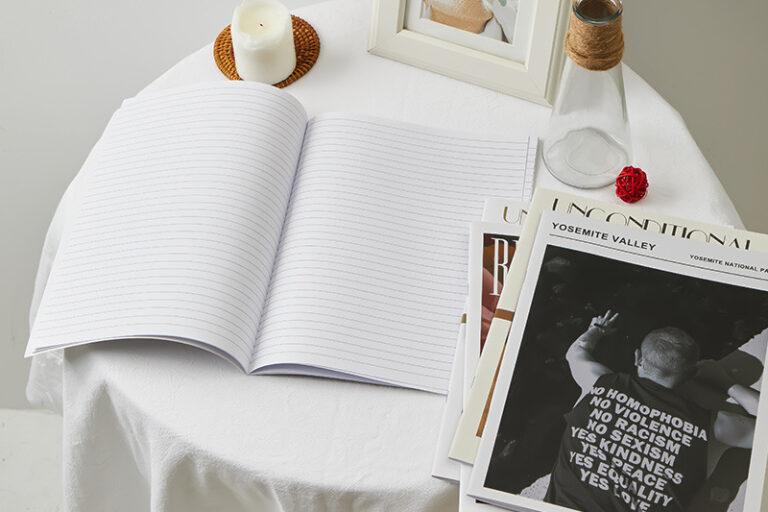 UNCONDITIONAL
YOSEMITE VALLEY
YOSEMITE NATIONAL
NO HOMOPHOBIA
NO VIOLENCE
NO RACISM
NO SEXISM
YES KINDNESS
YES PEACE
YES EQUALITY
YES LOVE